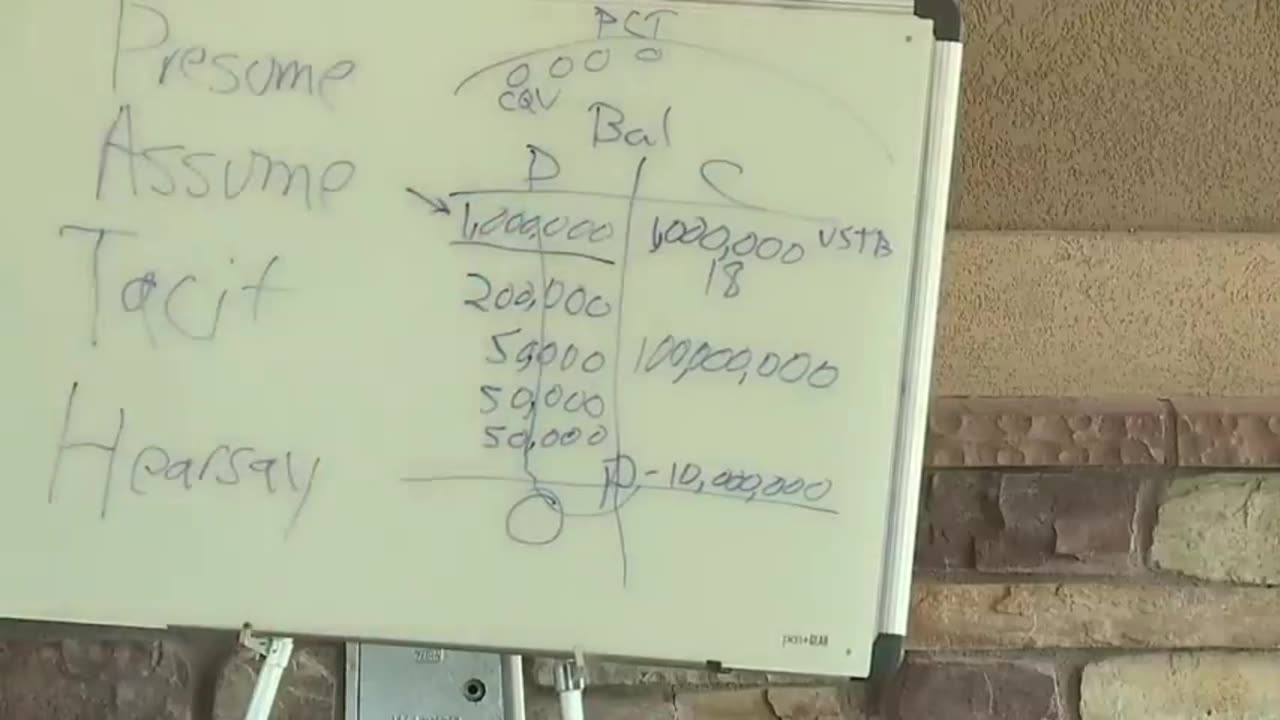 Presume
Assume
Tacit
Hearsay
PCT
CQV
Bal
D C
1,000,000 1,000,000 USTB
18
200,000
50,000 100,000,000
50,000
50,000
D -10,000,000
pen+GEAR